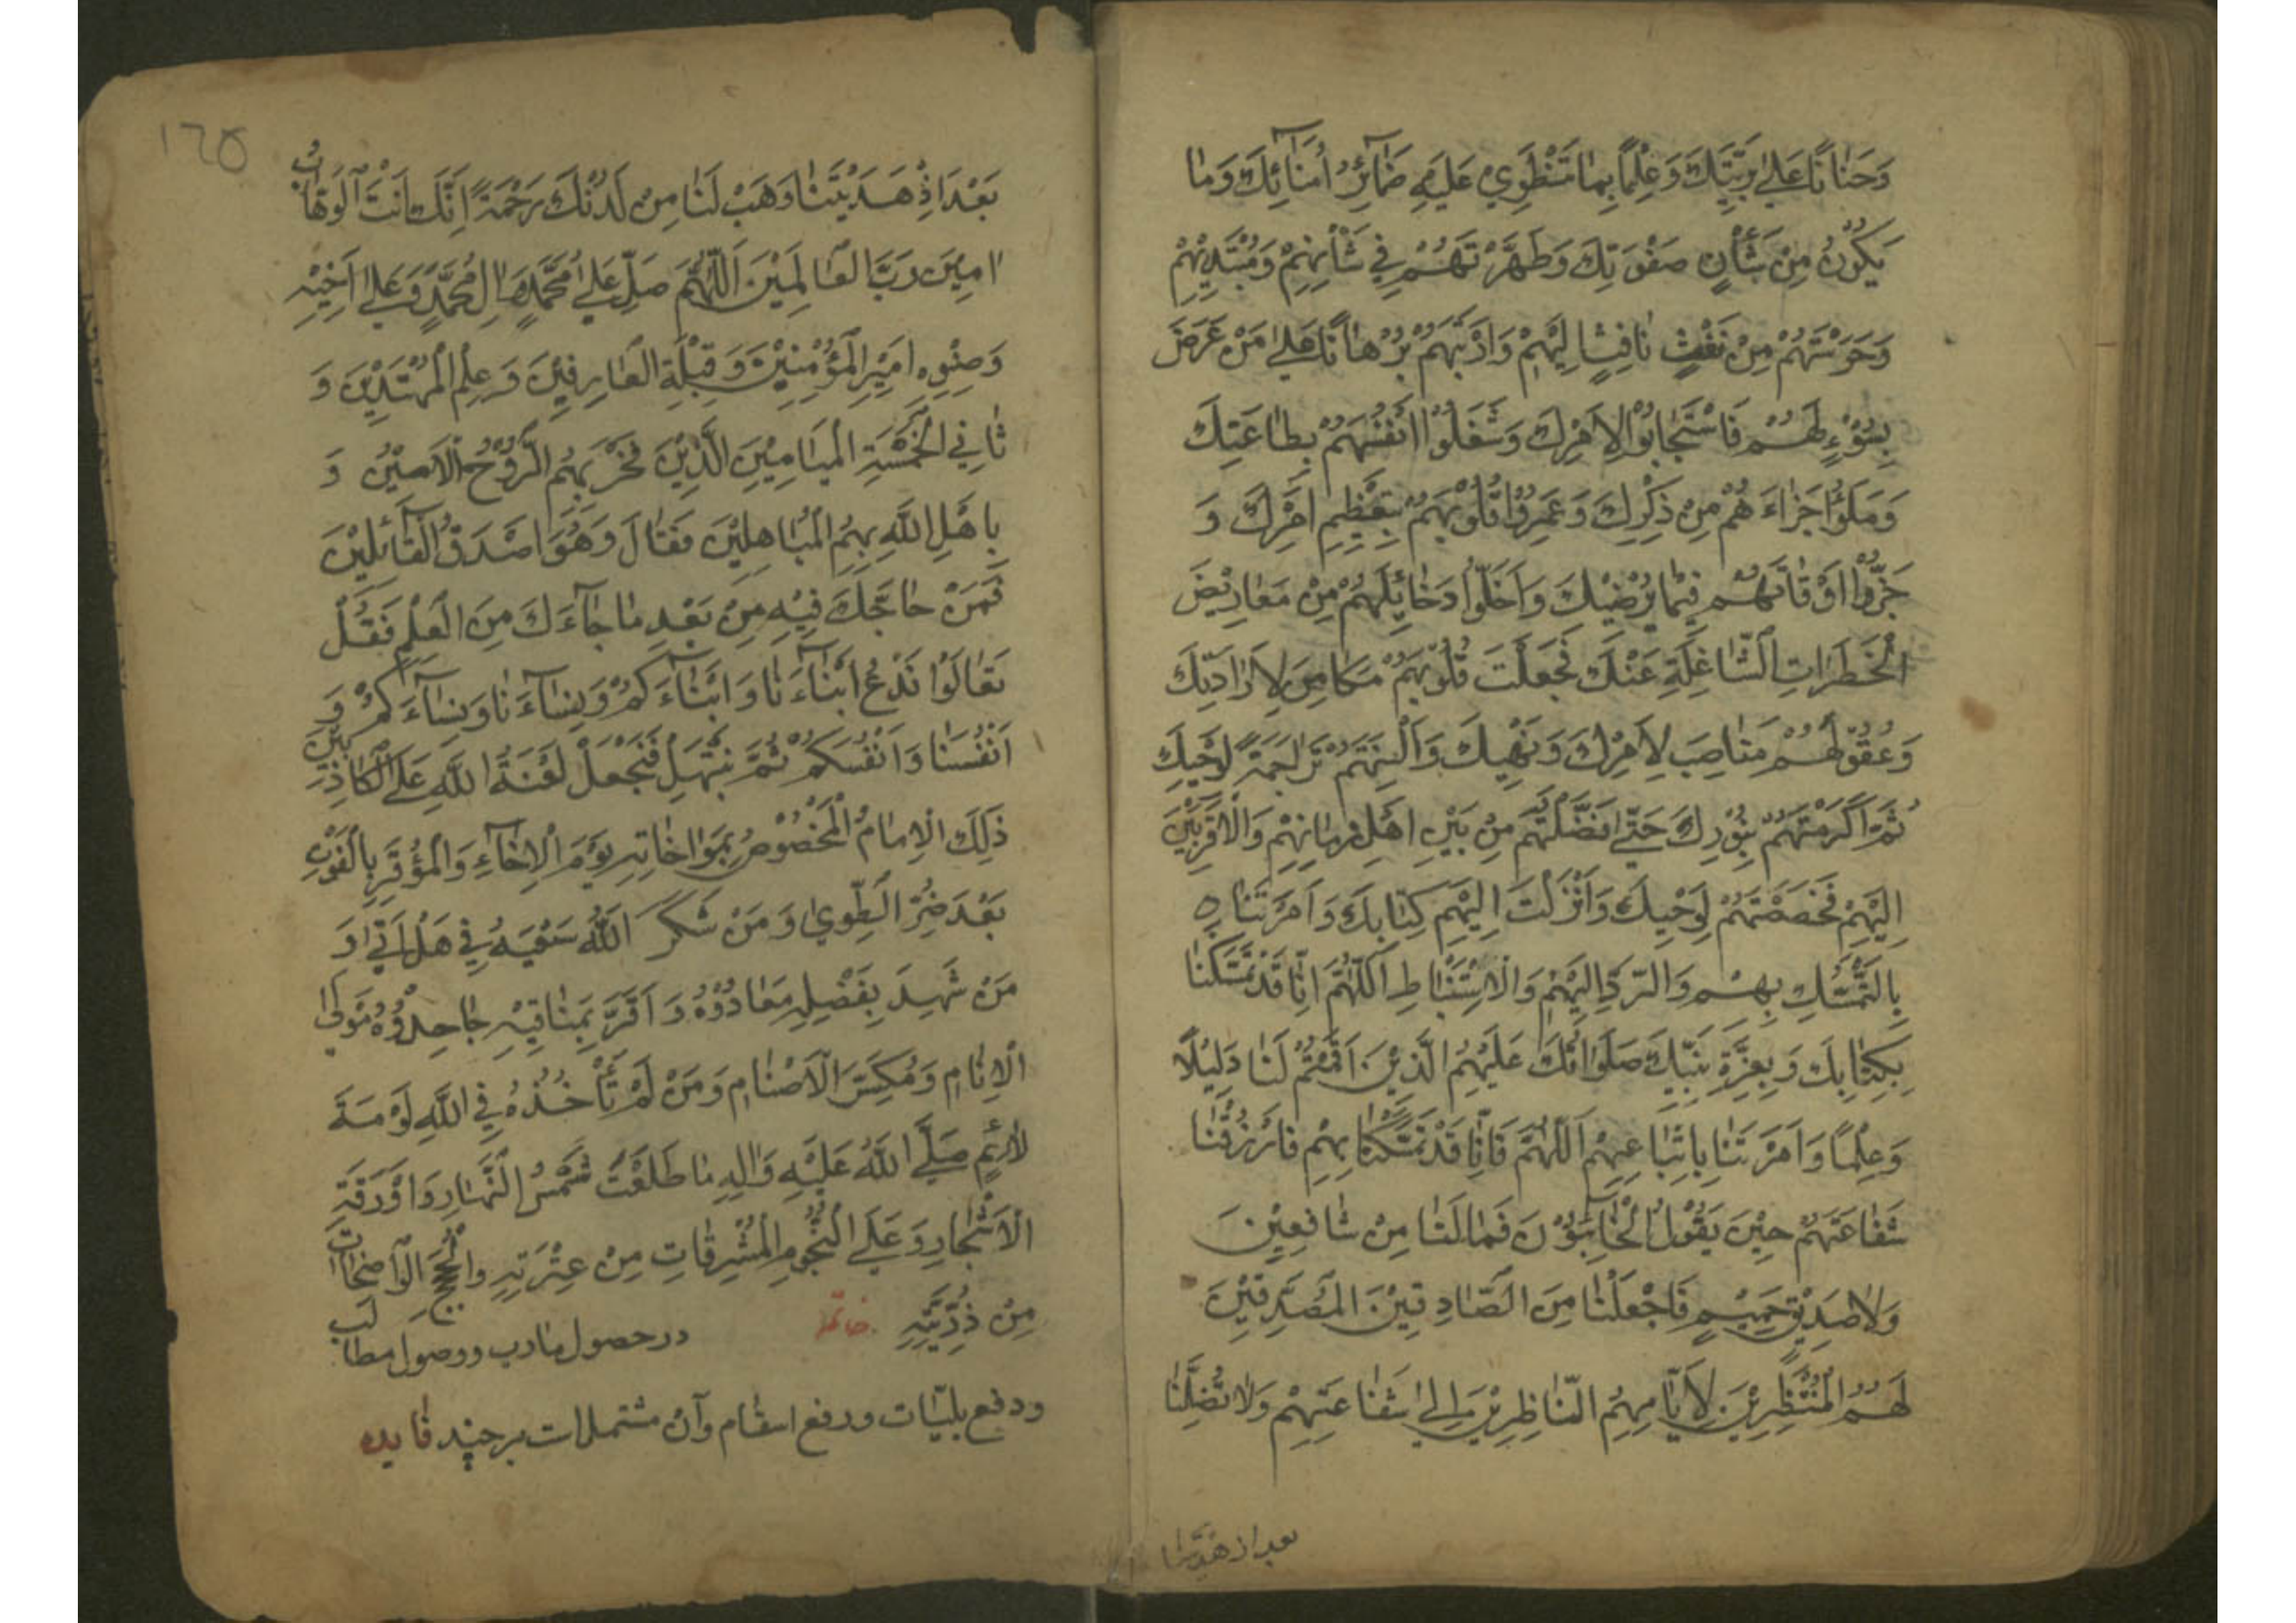 وَحَنَانًا عَلىٰ بَرِيَّتِكَ وَعِلْمًا بِمَا تَنْطَوِي عَلَيْهِ ضَمَآئِرُ اُمَنَآئِكَ وَمَا
يَكُوْنُ مِنْ شَأْنِ صَفْوَتِكَ وَطَهَّرْتَهُمْ فِي مَنْشَأِهِمْ وَمُبْتَدِئِهِمْ
وَحَرَسْتَهُمْ مِنْ نَفْثِ نَافِثٍ اِلَيْهِمْ وَاَرَيْتَهُمْ بُرْهَانًا عَلىٰ مَنْ عَرَضَ
بِسُوْءٍ لَهُمْ فَاسْتَجَابُوْا لِاَمْرِكَ وَشَغَلُوْا اَنْفُسَهُمْ بِطَاعَتِكَ
وَمَلَؤُا اَجْزَاءَ هُمْ مِنْ ذِكْرِكَ وَعَمِرُوْا قُلُوْبَهُمْ بِتَعْظِيْمِ اَمْرِكَ وَ
جَزَّؤُا اَوْقَاتَهُمْ فِيْمَا يُرْضِيْكَ وَاَخْلَوْا دَخَائِلَهُمْ مِنْ مَعَارِيْضَ
الْخَطَرَاتِ الشَّاغِلَةِ عَنْكَ فَجَعَلْتَ قُلُوْبَهُمْ مَكَامِنَ لِاِرَادَتِكَ
وَعُقُوْلَهُمْ مَنَاصِبَ لِاَمْرِكَ وَنَهْيِكَ وَاَلْسِنَتَهُمْ تَرَاجِمَةً لِوَحْيِكَ
ثُمَّ اَكْرَمْتَهُمْ بِنُوْرِكَ حَتّٰى فَضَّلْتَهُمْ مِنْ بَيْنِ اَهْلِ زَمَانِهِمْ وَالْاَقْرَبِيْنَ
اِلَيْهِمْ فَخَصَصْتَهُمْ لِوَحْيِكَ وَاَنْزَلْتَ اِلَيْهِمْ كِتَابَكَ وَاَمَرْتَنَا ه
بِالتَّمَسُّكِ بِهِمْ وَالرَّدِّ اِلَيْهِمْ وَالْاِسْتِنْبَاطِ اَللّٰهُمَّ اِنَّا قَدْ تَمَسَّكْنَا
بِكِتَابِكَ وَبِعِتْرَةِ نَبِيِّكَ صَلَوَاتُكَ عَلَيْهِمُ الَّذِيْنَ اَقَمْتَهُمْ لَنَا دَلِيْلًا
وَعِلْمًا وَاَمَرْتَنَا بِاتِّبَاعِهِمْ اَللّٰهُمَّ فَاِنَّا قَدْ تَمَسَّكْنَا بِهِمْ فَارْزُقْنَا
شَفَاعَتَهُمْ حِيْنَ يَقُوْلُ الْخَآئِبُوْنَ فَمَا لَنَا مِنْ شَافِعِيْنَ
وَلَا صَدِيْقٍ حَمِيْمٍ فَاجْعَلْنَا مِنَ الصَّادِقِيْنَ الْمُصَدِّقِيْنَ
لَهُمُ الْمُنْتَظِرِيْنَ لِاَيَّامِهِمُ النَّاظِرِيْنَ اِلىٰ شَفَاعَتِهِمْ وَلَا تُضِلَّنَا
بعد اذ هديتنا
١٦٥
بَعْدَ اِذْ هَدَيْتَنَا وَهَبْ لَنَا مِنْ لَدُنْكَ رَحْمَةً اِنَّكَ اَنْتَ الْوَهَّابُ
اٰمِيْنَ رَبَّ الْعَالَمِيْنَ اَللّٰهُمَّ صَلِّ عَلىٰ مُحَمَّدٍ وَاٰلِ مُحَمَّدٍ وَعَلىٰ اَخِيْهِ
وَصِنْوِهِ اَمِيْرِ الْمُؤْمِنِيْنَ وَقِبْلَةِ الْعَارِفِيْنَ وَعَلَمِ الْمُهْتَدِيْنَ وَ
ثَانِي الْخَمْسَةِ الْمَيَامِيْنَ الَّذِيْنَ فَخَرَ بِهِمُ الرُّوْحُ الْاَمِيْنُ وَ
بَاهَلَ اللّٰهُ بِهِمُ الْمُبَاهِلِيْنَ فَقَالَ وَهُوَ اَصْدَقُ الْقَآئِلِيْنَ
فَمَنْ حَاجَّكَ فِيْهِ مِنْ بَعْدِ مَا جَآءَكَ مِنَ الْعِلْمِ فَقُلْ
تَعَالَوْا نَدْعُ اَبْنَآءَنَا وَاَبْنَآءَكُمْ وَنِسَآءَنَا وَنِسَآءَكُمْ وَ
اَنْفُسَنَا وَاَنْفُسَكُمْ ثُمَّ نَبْتَهِلْ فَنَجْعَلْ لَعْنَةَ اللّٰهِ عَلَى الْكَاذِبِيْنَ
ذٰلِكَ الْاِمَامُ الْمَخْصُوْصُ بِمَوَاخَاتِهِ يَوْمَ الْاِخَآءِ وَالْمُؤْثِرُ بِالْقُوْتِ
بَعْدَ ضُرِّ الطَّوىٰ وَمَنْ شَكَرَ اللّٰهُ سَعْيَهُ فِي هَلْ اَتىٰ وَ
مَنْ شَهِدَ بِفَضْلِهِ مُعَادُوْهُ وَاَقَرَّ بِمَنَاقِبِهِ جَاحِدُوْهُ مَوْلَى
الْاَنَامِ وَمُكَسِّرَ الْاَصْنَامِ وَمَنْ لَمْ تَأْخُذْهُ فِي اللّٰهِ لَوْمَةَ
لَائِمٍ صَلَّى اللّٰهُ عَلَيْهِ وَاٰلِهِ مَا طَلَعَتْ شَمْسُ النَّهَارِ وَاَوْرَقَتِ
الْاَشْجَارُ وَعَلَى النُّجُوْمِ الْمُشْرِقَاتِ مِنْ عِتْرَتِهِ وَالْحُجَجِ الْوَاضِحَاتِ
مِنْ ذُرِّيَّتِهِ خاتمه در حصول مارب ووصول مطالب
ودفع بليّات ورفع اسقام وآن مشتملات بر چند فايده